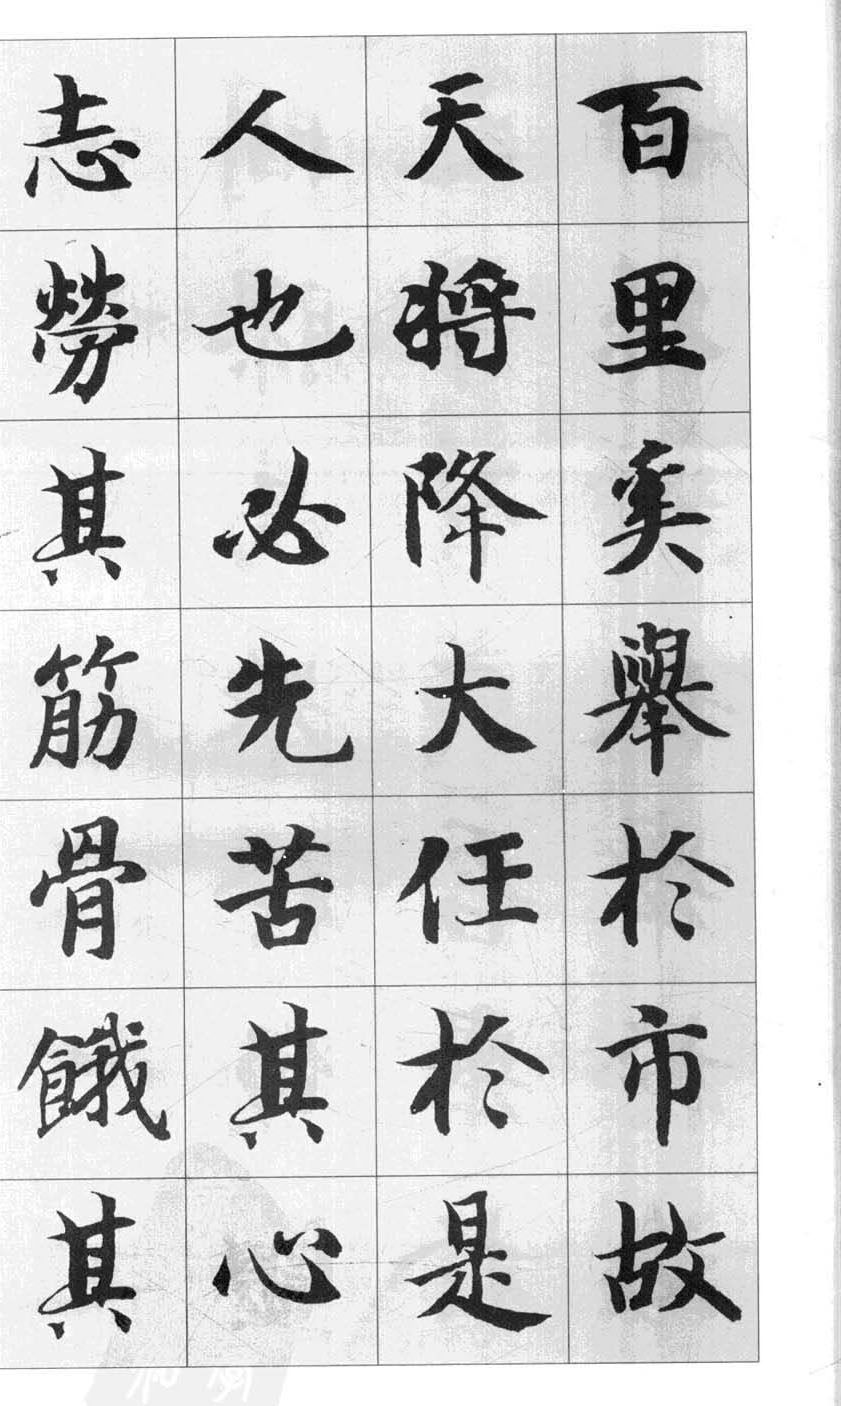 百里奚舉於市故
天将降大任於是
人也必先苦其心
志勞其筋骨餓其